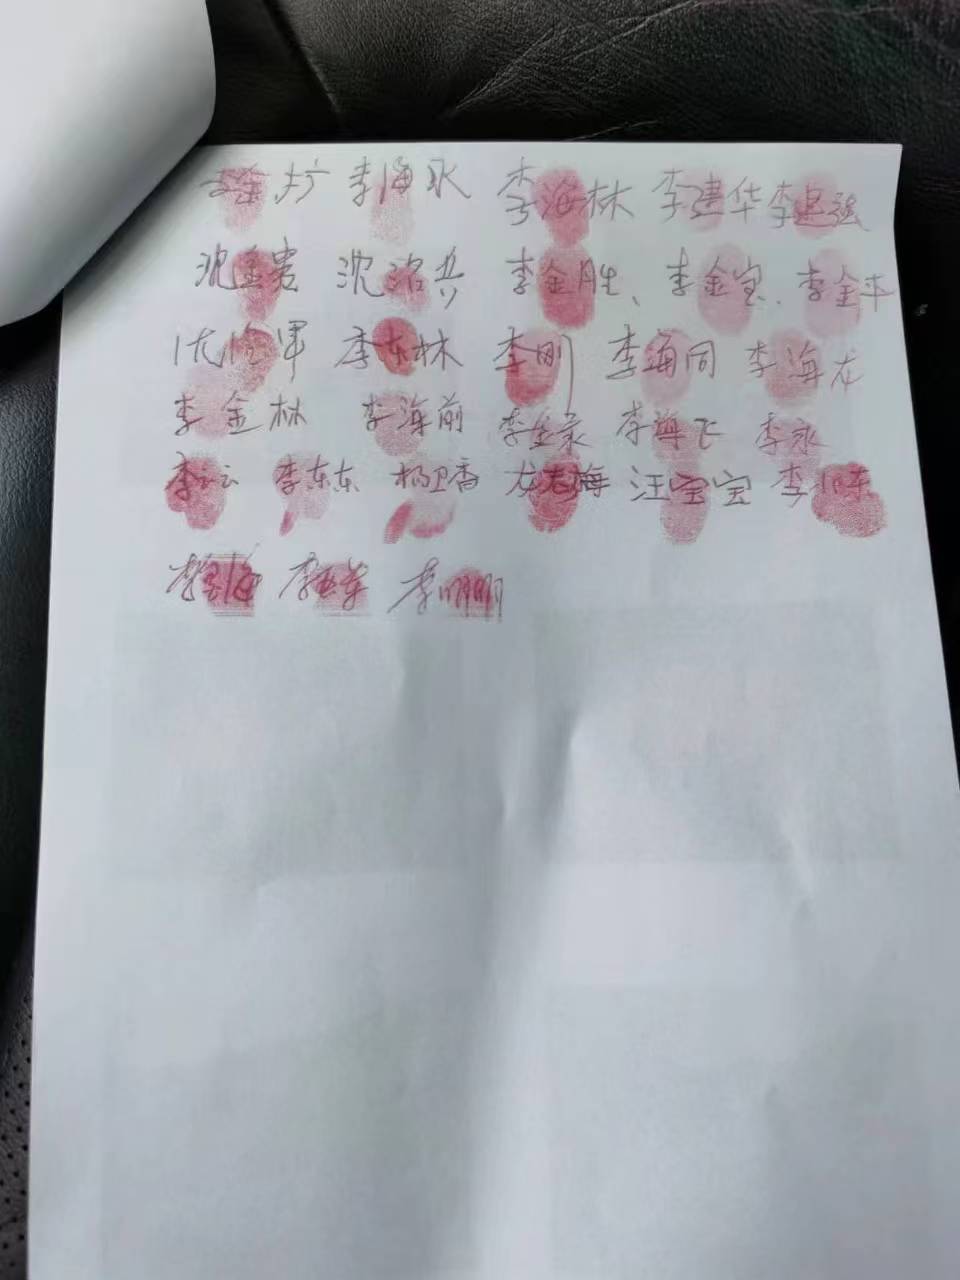 李海水 李海林 李建华 李建强
沈金贵 沈治共 李金胜、李金宝、李金平
李东林 李刚 李海同 李海龙
李金林 李海前 李金录 李海飞 李永
李云 李东东 杨卫香 龙志海 汪宝宝 李旭东
李明明